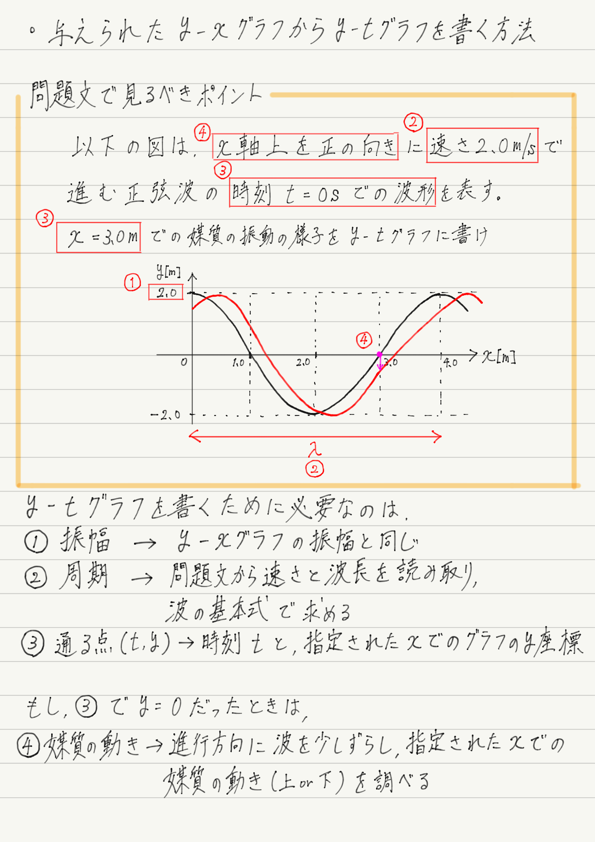 • 与えられた y-xグラフから y-tグラフを書く方法
問題文で見るべきポイント
④ ②
以下の図は、x軸上を正の向きに速さ2.0m/sで
③
進む正弦波の時刻 t=0s での波形を表す。
③ x=3.0m での媒質の振動の様子を y-tグラフに書け
y[m]
① 2.0
④
0 1.0 2.0 3.0 4.0 x[m]
-2.0
λ
②
y-tグラフを書くために必要なのは、
① 振幅 → y-xグラフの振幅と同じ
② 周期 → 問題文から速さと波長を読み取り、
波の基本式で求める
③ 通る点(t,y)→時刻 t と、指定された xでのグラフのy座標
もし、③で y=0だったときは、
④媒質の動き→進行方向に波を少しずらし、指定されたxでの
媒質の動き(上or下)を調べる